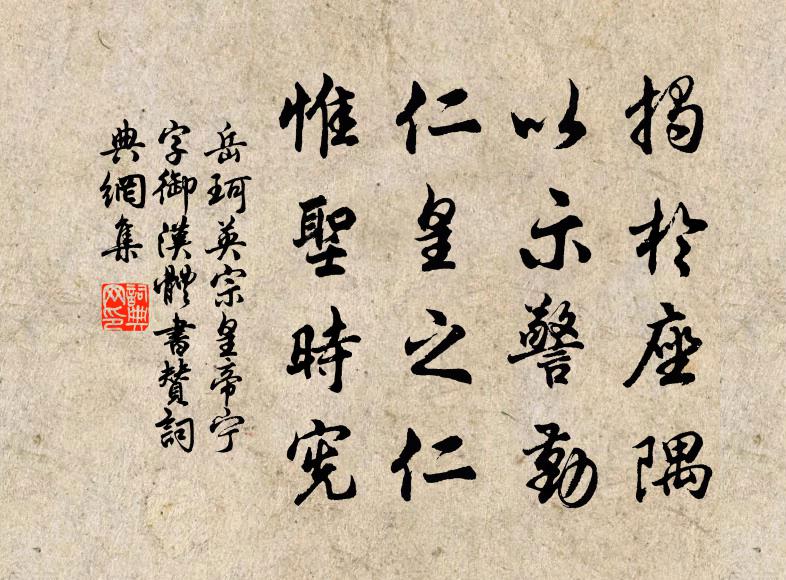 揭於座隅
以示警勤
仁皇之仁
惟聖時宪
岳珂英宗皇帝宁
字御漢體書贊詞
典網集
詞典
网印